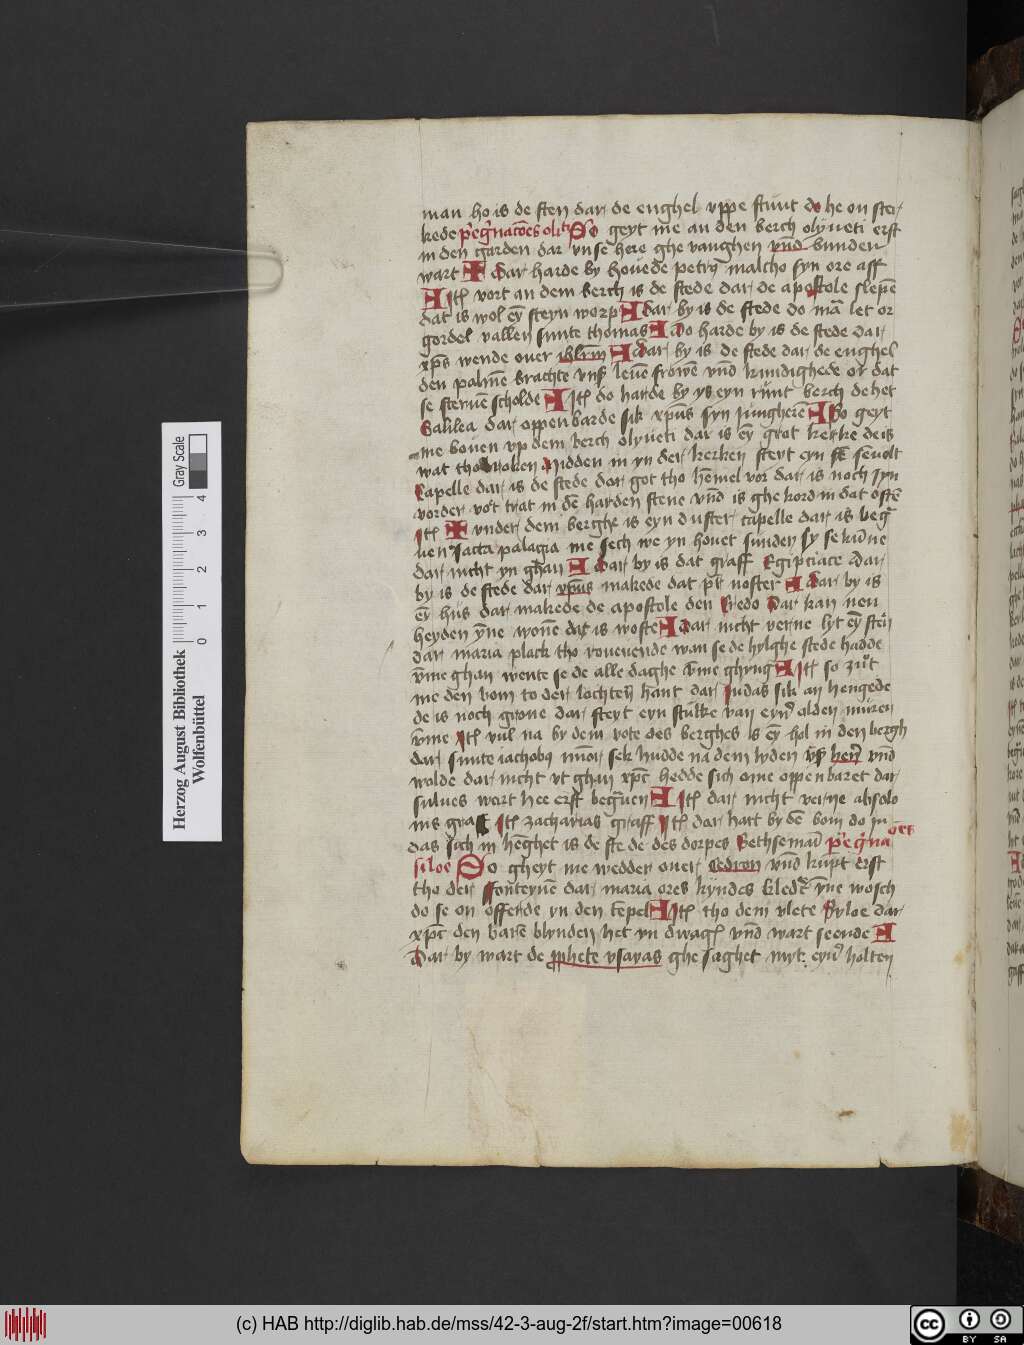 man ho is de sten dar de enghel vppe stunt do he on ster
kede p'egrnacōes oliti So geyt me an den berch olyueti erst
in den garden dar vnse here ghe vanghen vnd bunden
wart dar harde by houede petrꝯ malcho syn ore aff
Itē vort an dem berch is de stede dar de apostole slepē
dat is wol eȳ steyn worp dar by is de stede do maͣ let or
gordel vallen sunte thomas do harde by is de stede dar
xp̄s wende ouer ihrlm̄ dar by is de stede dar de enghel
den palmē brachte vnß leuē frowē vnd kundighede or dat
se steruē scholde Itē do harde by ys eyn runt berch de het
Galilea dar oppenbarde sik xp̄us syn jungherē So geyt
me bouen vp dem berch olyueti dar is eȳ grot kerke de is
wat tho broken Midden in yn der kerken steyt eyn seuolt
Capelle dar is de stede dar got tho hēmel vor dar is noch syn
vorder vot trat in dē harden stene vnd is ghe kord in dat ostē
Itē vnder dem berghe is eyn duster capelle dar is beg
uen sācta palagia me sech we yn houet sunden sy se kūne
dar nicht yn ghan dar by is dat graff Egipciace dar
by is de stede dar xp̄us makede dat pr̄ noster dar by is
eȳ hus dar makede de apostole den Credo dar kan neu
heyden yne wonē dat is woste dar nicht verne lyt eȳ stēn
dar maria plach tho rouwende wan se de hylghe stede hadde
vme ghan wente se de alle daghe vme ghyng Itē so zut
me den bom to der lochteren hant dar Judas sik an hengede
de is noch grone dar steyt eyn stucke van eyner olden muren
vme Itē vul na by dem vote des berghes is eȳ hol in den bergh
dar sunte iacobꝯ minor sek hudde na dem lyden vß heren vnd
wolde dar nicht vt ghan xp̄c hedde sich ome oppenbaret dar
sulues wart hee erst begrauen Itē dar nicht verne absolo
nis graff Itē zacharias graff Itē dar hart by dē bom do ju
das sich in hēghet is de stede des dorpes Bethsemaī p'egrna
cōes
siloe So gheyt me wedder ouer Cedron vnd kūpt erst
tho der fonteynē dar maria ores kyndes kleder yne wosch
do se on offerde yn den tēpel Itē tho dem vlete Syloe dar
xp̄c den barē blynden het yn dwagē vnd wart seende
Dar by wart de pphete ysayas ghe saghet myt eyner holten
Herzog August Bibliothek
Wolfenbüttel
0 1 2 3 4
Gray Scale
(c) HAB http://diglib.hab.de/mss/42-3-aug-2f/start.htm?image=00618
cc BY SA